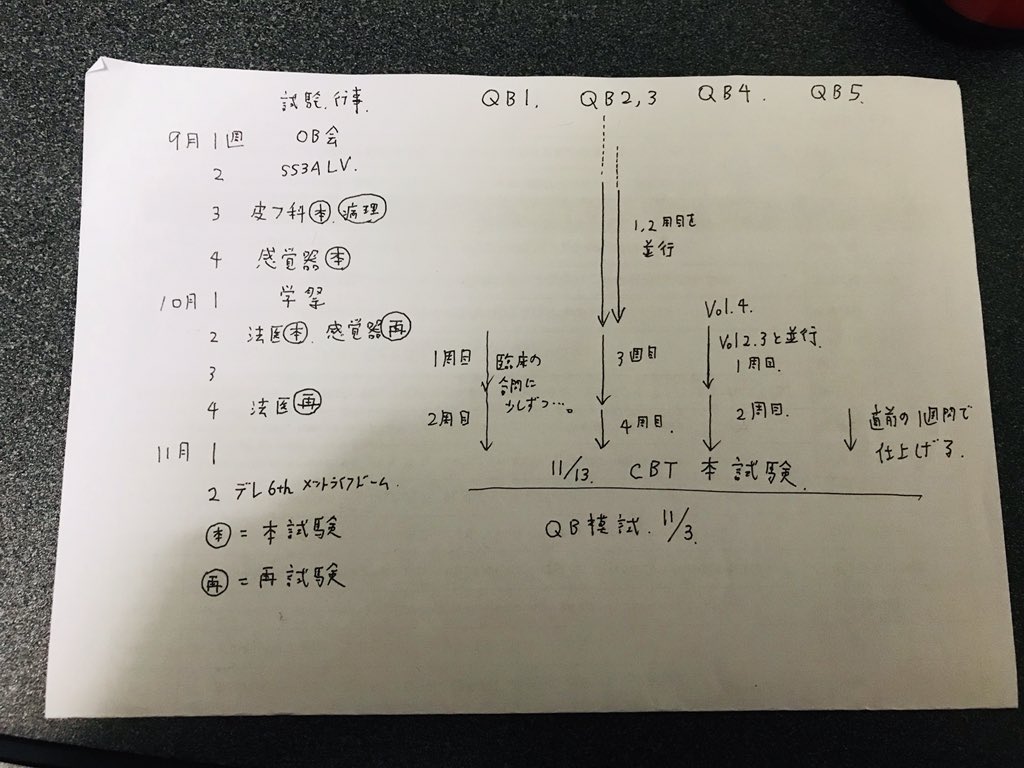 試験.行事. QB1. QB2,3 QB4. QB5.
9月 1週 OB会
2 SS3A LV.
3 皮フ科㊍.病理
4 感覚器㊍
10月 1 学祭
2 法医㊍. 感覚器再
3
4 法医再
11月 1
2 デレ6th メットライフドーム.
㊍ = 本試験
再 = 再試験
1,2周目を
並行
1周目
臨床の
合間に
少しずつ…。
2周目
3週目
4周目.
Vol.4.
Vol2.3と並行.
1周目.
2周目.
直前の1週間で
仕上げる.
11/13. CBT 本試験.
QB模試. 11/3.